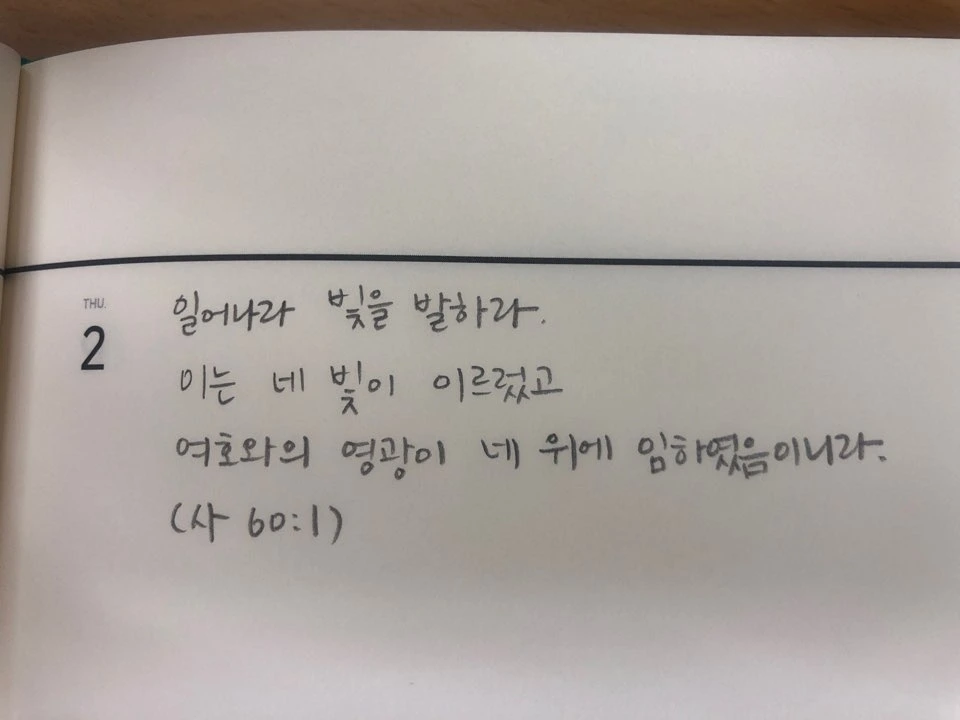 THU.
2
일어나라 빛을 발하라.
이는 네 빛이 이르렀고
여호와의 영광이 네 위에 임하였음이니라.
(사 60:1)